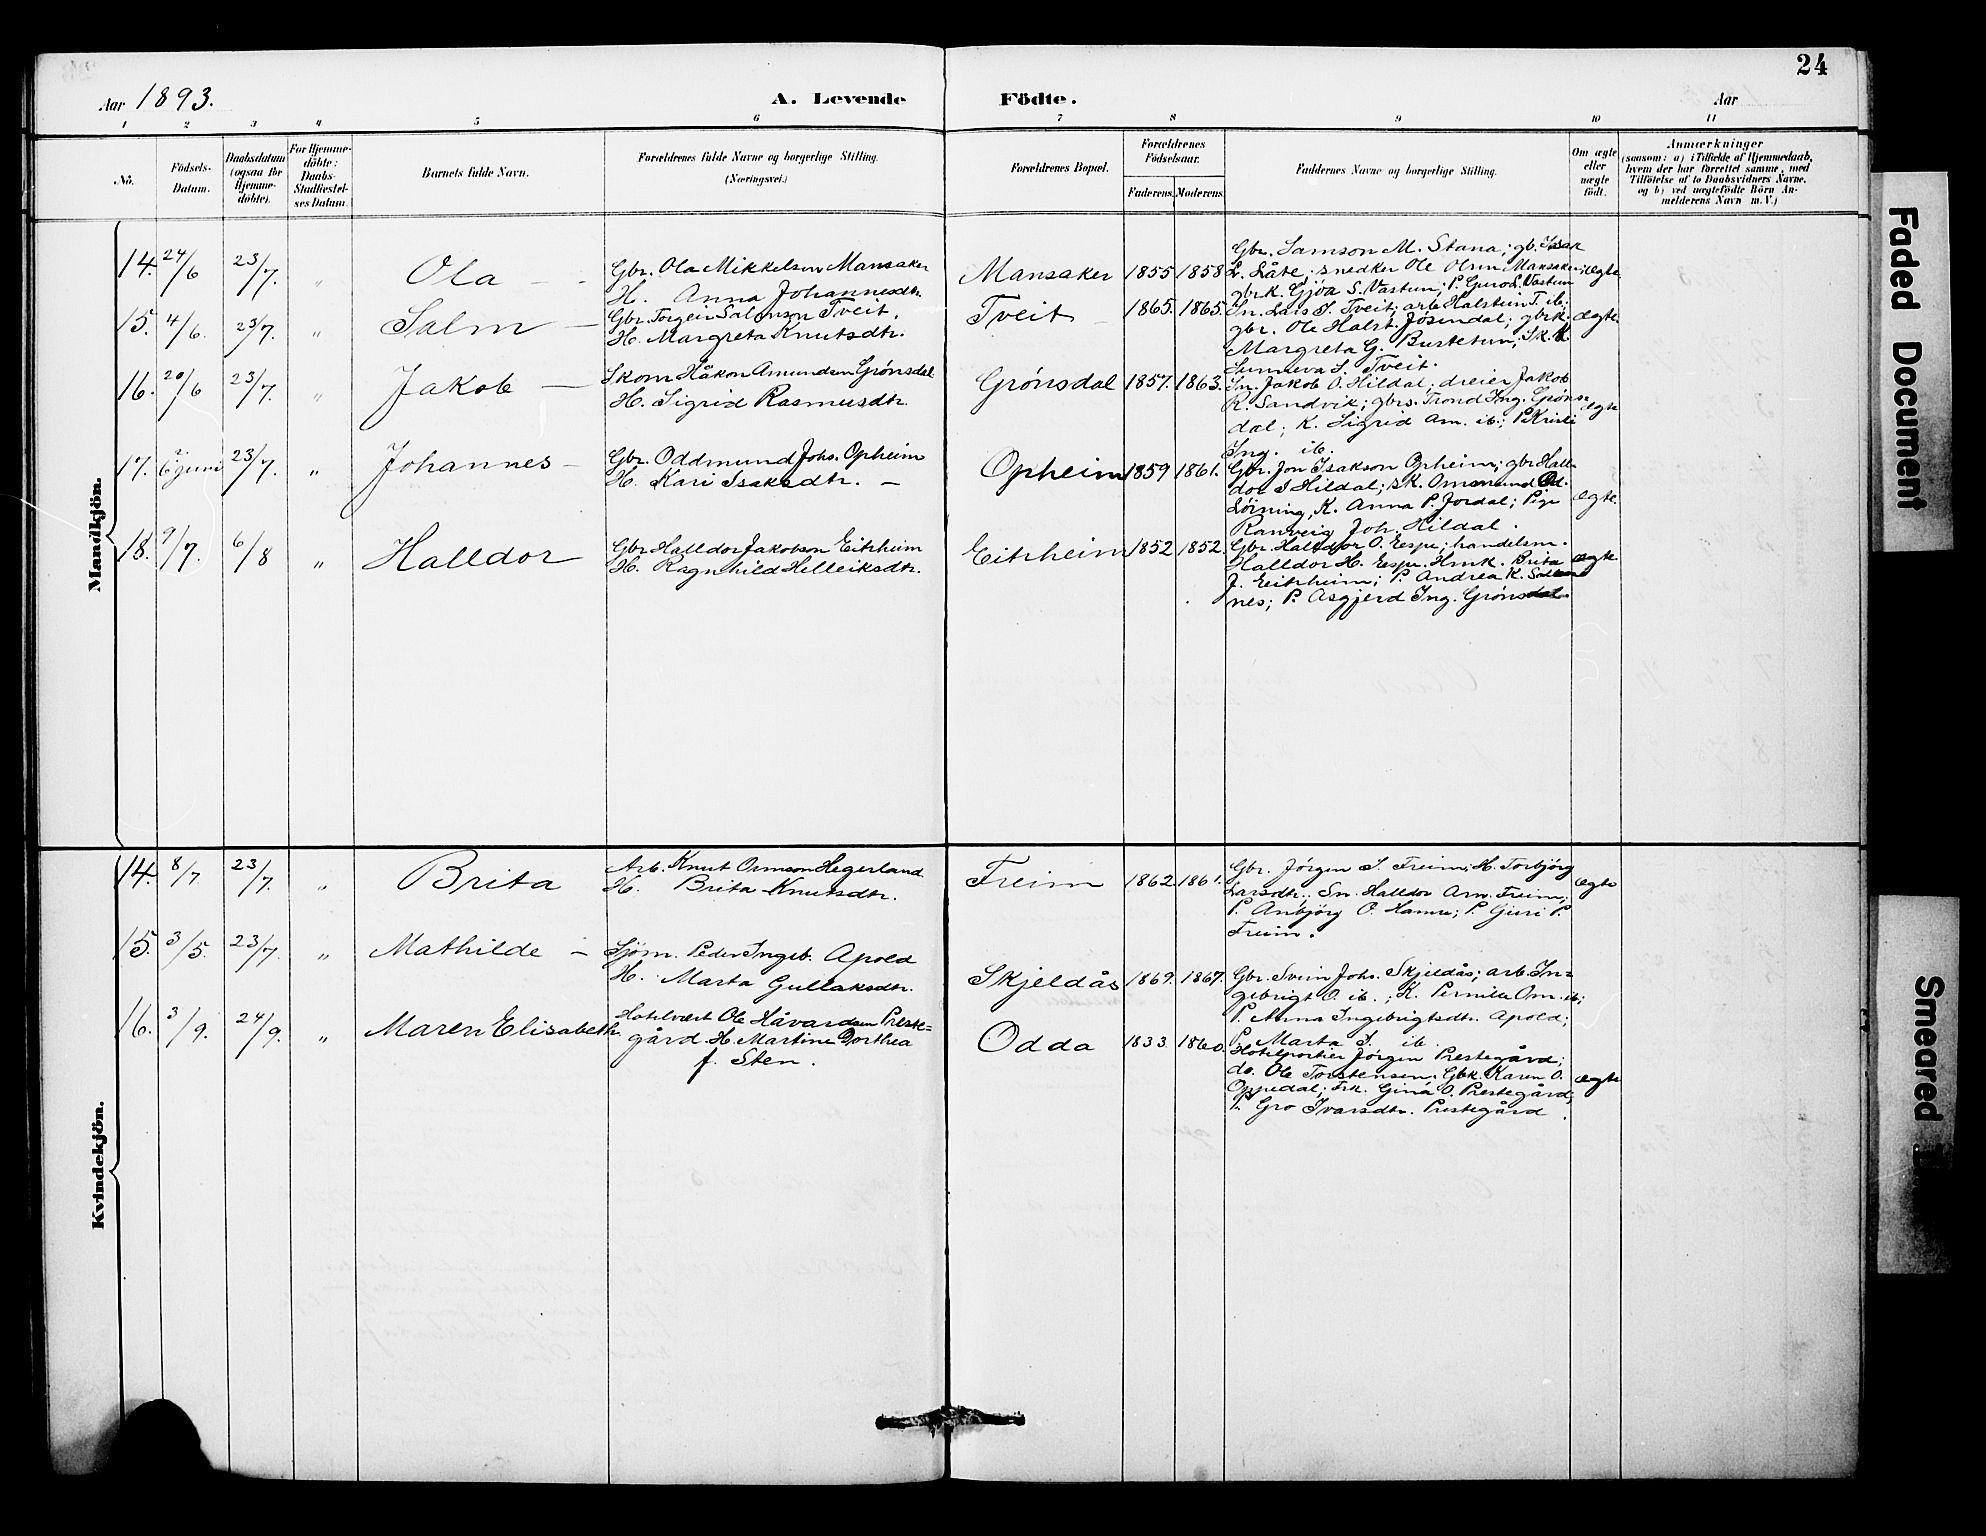 24
Aar 1893. A. Levende Födte. Aar
1 2 3 4 5 6 7 8 9 10 11
No. Födsels-Datum. Daabsdatum (ogsaa for Hjemme-döbte). For Hjemme-döbte: Daabs-Stadfæstel-ses Datum. Barnets fulde Navn. Forældrenes fulde Navne og borgerlige Stilling. (Næringsvei.) Forældrenes Bopæl. Forældrenes Födselsaar. Faderens. Moderens. Faddernes Navne og borgerlige Stilling. Om ægte eller uægte födt. Anmærkninger (saasom: a) i Tilfælde af Hjemmedaab, hvem der har forrettet samme, med Tilföielse af to Daabsvidners Navne, og b) ved uægtefödte Börn An-melderens Navn m. V.)
Mandkjön.
14. 24/6 23/7. " Ola - Gbr. Ola Mikkelsen Mansaker
H. Anna Johannesdtr.
Mansaker 1855 1858
Gbr. Samson M. Stana; gb. Isak
L. Låte; snedker Ole Olsen Mansaker; ægte.
gbrk. Gjøa S. Vastun; P. Guro S. Vastun
15. 4/6. 23/7. " Salm - Gbr. Torgeir Salmson Tveit,
H. Margreta Knutsdtr.
Tveit 1865. 1865.
Sn. Lars S. Tveit; arb Halstein T. ib;
gbr. Ole Halst. Jøsendal; gbrk. ægte.
Margreta G. Bustetun; Sk. K.
Sunneva S. Tveit.
16. 20/6 23/7. " Jakob - Skom Håkon Amundsen Grønsdal
H. Sigrid Rasmusdtr.
Grønsdal 1857. 1863.
Sn. Jakob O. Hildal; dreier Jakob
R. Sandvik; gbrs. Trond Ing. Grøns-
dal; K. Sigrid Am. ib.; P. Kristi ægte
Ing. ib.
17. 23/7. " Johannes - Gbr. Oddmund Johs. Opheim
H. Kari Isaksdtr. -
Opheim 1859 1861.
Gbr. Jon Isakson Opheim; gbr Hall-
dor S Hildal; sk. Ommund Od.
Løining, K. Anna P. Jordal; Pige ægte.
Ranveig Joh. Hildal.
18. 9/7. 6/8 " Halldor Gbr. Halldor Jakobson Eitrheim
H. Ragnhild Helleiksdtr.
Eitrheim 1852 1852.
Gbr. Halldor O. Espe; handelsm.
Halldor H. Espe. Hmk. Brita ægte
J. Eitrheim; P. Andrea K.
nes; P. Asgjerd Ing. Grønsdal.
Kvindekjön.
14. 8/7 23/7. " Brita Arb. Knut Ormson Hegerland
H. Brita Knutsdtr.
Freim 1862 1861.
Gbr. Jørgen S. Freim; H. Torbjørg
Larsdtr.; Sn. Halldor Arn. Freim; ægte
P. Anbjørg O. Hamre; P. Guri P.
Freim.
15. 3/5. 23/7. " Mathilde - Sjøm. Peder Ingeb. Apold
H. Marta Gullaksdtr.
Skjeldås 1867. 1867.
Gbr. Svein Johs. Skjeldås; arb In=
gebrigt O. ib.; K. Pernilla Om. ib;
P. Anna Ingebrigtsdtr. Apold;
P. Marta S. ib.
16. 3/9. 24/9. " Maren Elisabeth. Hotelvært Ole Håvardsen Preste=
gård. H. Martine Dorthea
f. Sten.
Odda 1833 1860.
Hotelportier Jørgen Prestegård;
do. Ole Torstensen. Gbk. Karen O. ægte
Oppedal; Frk. Gina O. Prestegård;
P. Gro Ivarsdtr. Prestegård.
Faded Document
Smeared